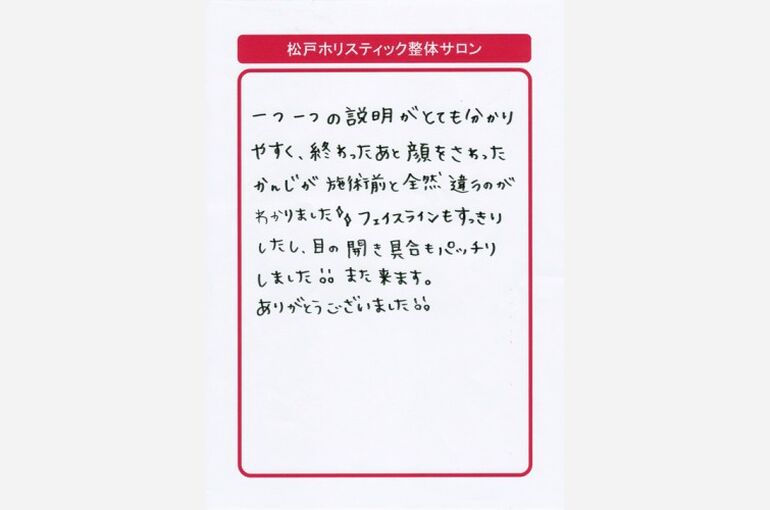 松戸ホリスティック整体サロン
一つ一つの説明がとても分かり
やすく、終わったあと顔をさわった
かんじが施術前と全然違うのが
わかりました!! フェイスラインもすっきり
したし、目の開き具合もパッチリ
しました!! また来ます。
ありがとうございました!!